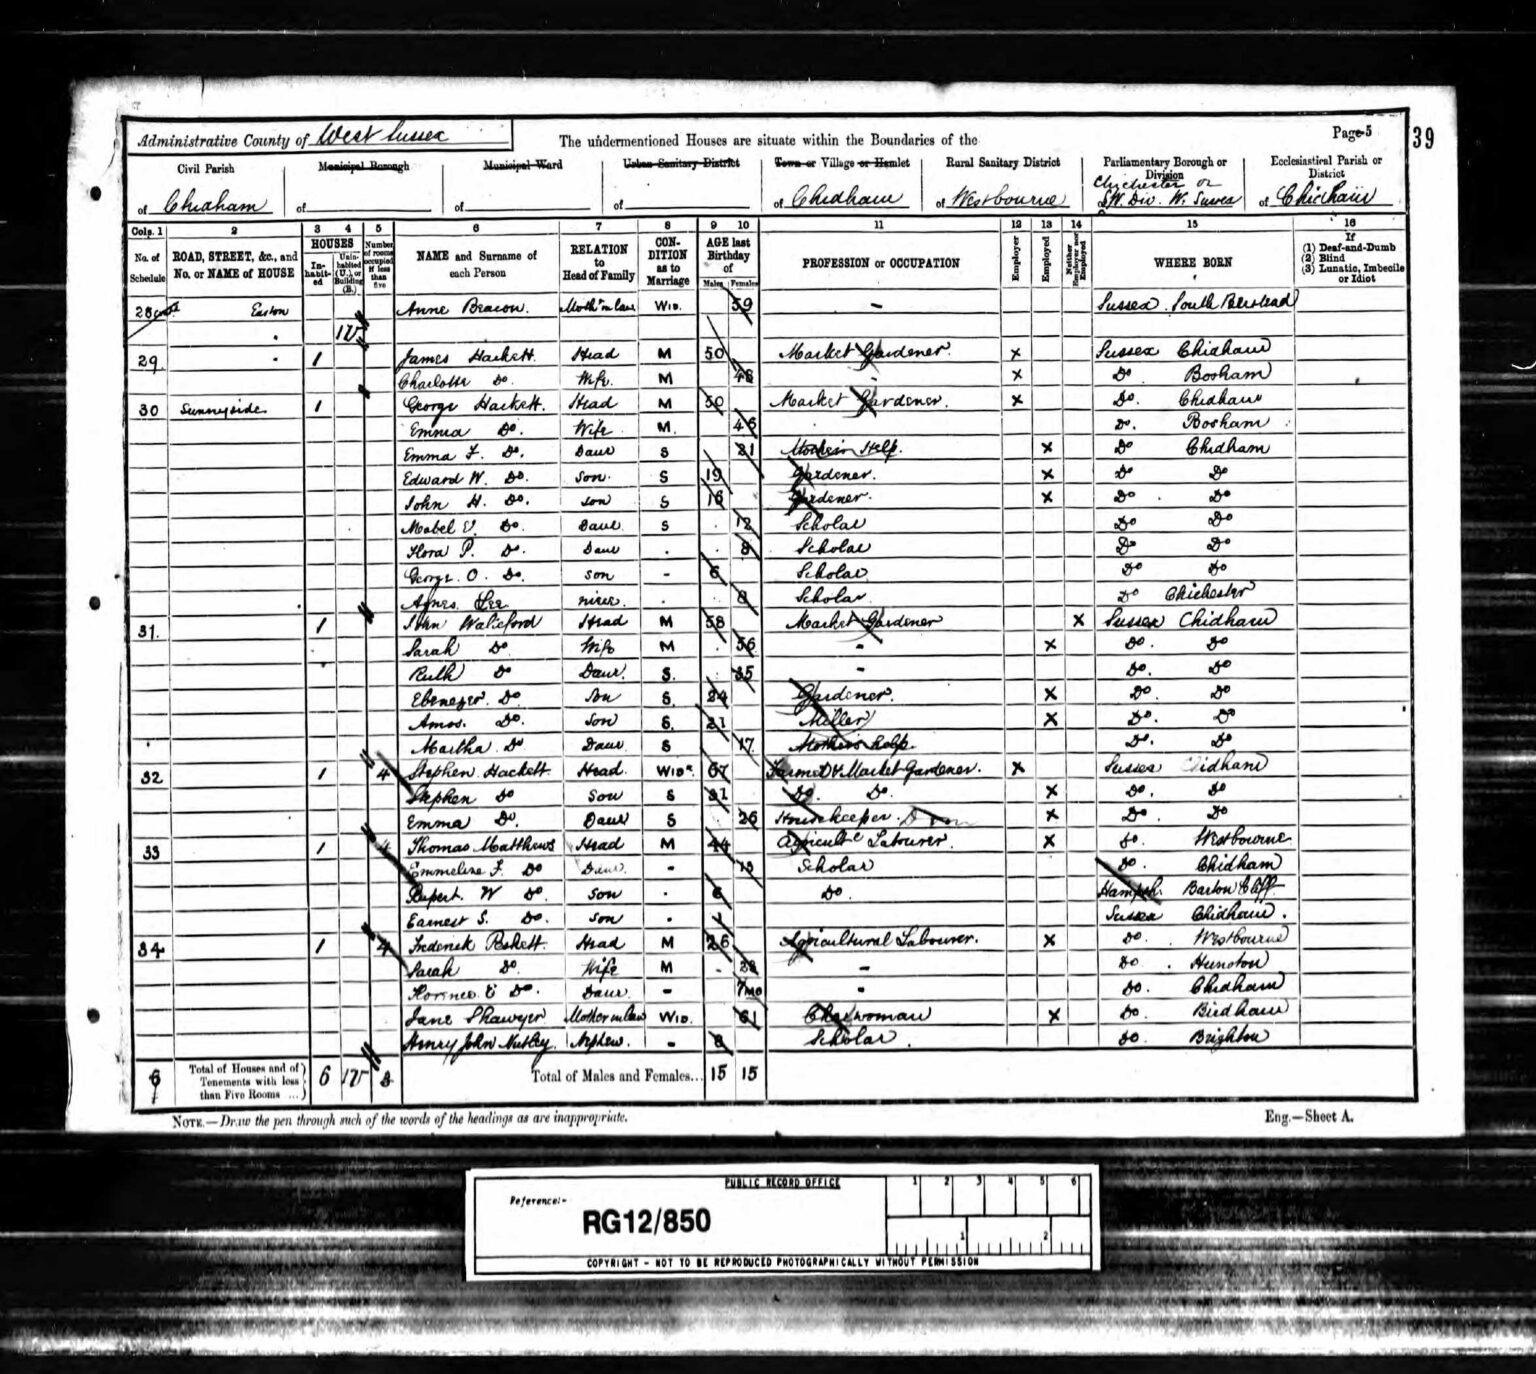 39
Administrative County of West Sussex The undermentioned Houses are situate within the Boundaries of the Page 5
Civil Parish Municipal Borough Municipal Ward Urban Sanitary District Town or Village or Hamlet Rural Sanitary District Parliamentary Borough or Division Ecclesiastical Parish or District
of Chidham of of of of Chidham of Westbourne Chichester or S.W. Div. W. Sussex of Chidham
Cols. 1 2 3 4 5 6 7 8 9 10 11 12 13 14 15 16
No. of Schedule ROAD, STREET, &c., and No. or NAME of HOUSE HOUSES Inhabited Uninhabited (U.), or Building (B.) Number of rooms occupied if less than five NAME and Surname of each Person RELATION to Head of Family CONDITION as to Marriage AGE last Birthday of Males Females PROFESSION or OCCUPATION Employer Employed Neither Employer nor Employed WHERE BORN If (1) Deaf-and-Dumb (2) Blind (3) Lunatic, Imbecile or Idiot
28 Easton Anne Beacon. Mothr in law Wid. 59 - Sussex South Berstead
1U
29 1 James Hackett Head M 50 Market Gardener x Sussex Chidham
Charlotte Do. Wife M 48 - x Do. Bosham
30 Sunnyside 1 George Hackett. Head M 50 Market Gardener. x Do. Chidham
Emma Do. Wife M. 46 Do. Bosham
Emma F. Do. Daur S 21 Mothers Help. x Do Chidham
Edward W. Do. Son. S 19 Gardener. x Do Do
John H. Do. Son S 16 Gardener. x Do. Do
Mabel V. Do. Daur S 12 Scholar Do Do
Flora P. Do. Daur . 9 Scholar Do Do
George O. Do. Son - 6 Scholar Do Do
Agnes Lee niece. . 8 Scholar. Do Chichester
31. 1 John Walleford Head M 58 Market Gardener x Sussex Chidham
Sarah Do Wife M 56 - x Do. Do
Ruth Do Daur. S. 35 - Do. Do
Ebenezer. Do Son S. 24 Gardener. x Do. Do
Amos. Do. Son S. 21 Miller x Do. Do
Martha Do Daur S 17 Mothers help. Do. Do
32 1 4 Stephen Hackett Head. Widr. 67 Farmer & Market Gardener. x Sussex Chidham
Stephen Do Son S 31 Do. Do. x Do. Do
Emma Do. Daur S 26 Housekeeper. Dom x Do. Do
33 1 4 Thomas Matthews Head M 44 Agricultl Labourer. x Do. Westbourne
Emmeline F. Do Daur. - 13 Scholar Do. Chidham
Rupert. W Do. Son . 6 Do. Hampsh. Barton Cliff
Earnest S. Do. Son . 1 Sussex Chidham.
34 1 4 Frederick Peskett. Head M 26 Agricultural Labourer. x Do. Westbourne
Sarah Do. Wife M 28 - Do. Hunston
Florence E Do. Daur. - 7mo - Do. Chidham
Jane Shawyer Mother in law Wid. 61 Charwoman x Do. Birdham
Henry John Nutley. Nephew. - 8 Scholar. Do. Brighton
6 Total of Houses and of Tenements with less than Five Rooms ... 6 1U 3 Total of Males and Females... 15 15
NOTE.—Draw the pen through such of the words of the headings as are inappropriate. Eng.—Sheet A.
PUBLIC RECORD OFFICE 1 2 3 4 5 6
Reference:-
RG12/850
1 2
COPYRIGHT - NOT TO BE REPRODUCED PHOTOGRAPHICALLY WITHOUT PERMISSION